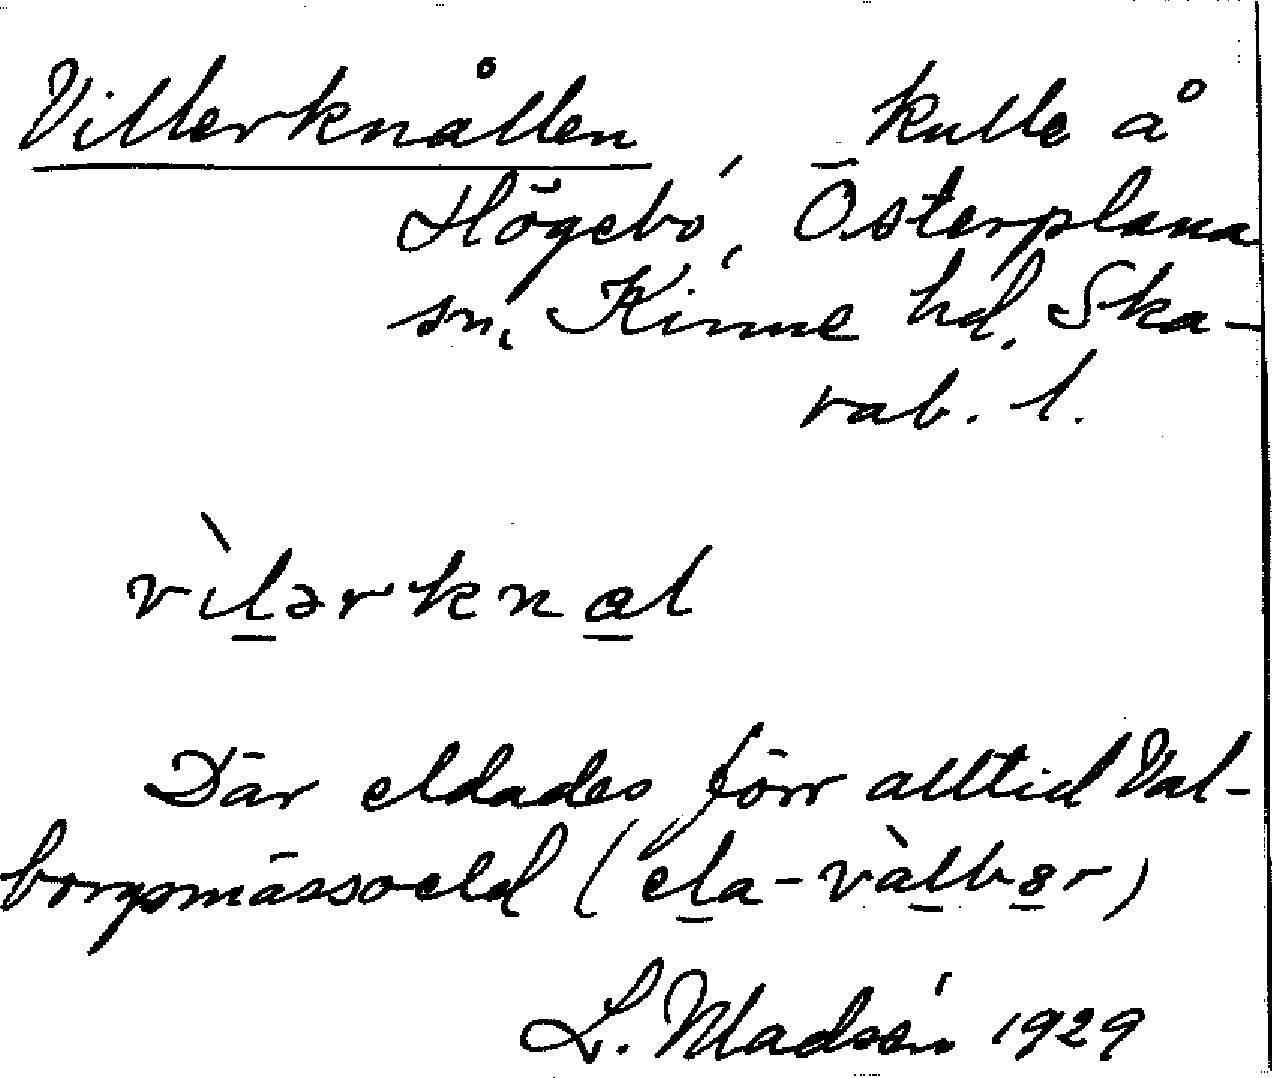 Villerknållen, kulle å
Högebo, Österplana
sn, Kinne hd, Ska-
rab. l.
vìlərknal
Där eldades förr alltid Val-
borgsmässoeld (ela-vàlbər)
L. Madsén 1929